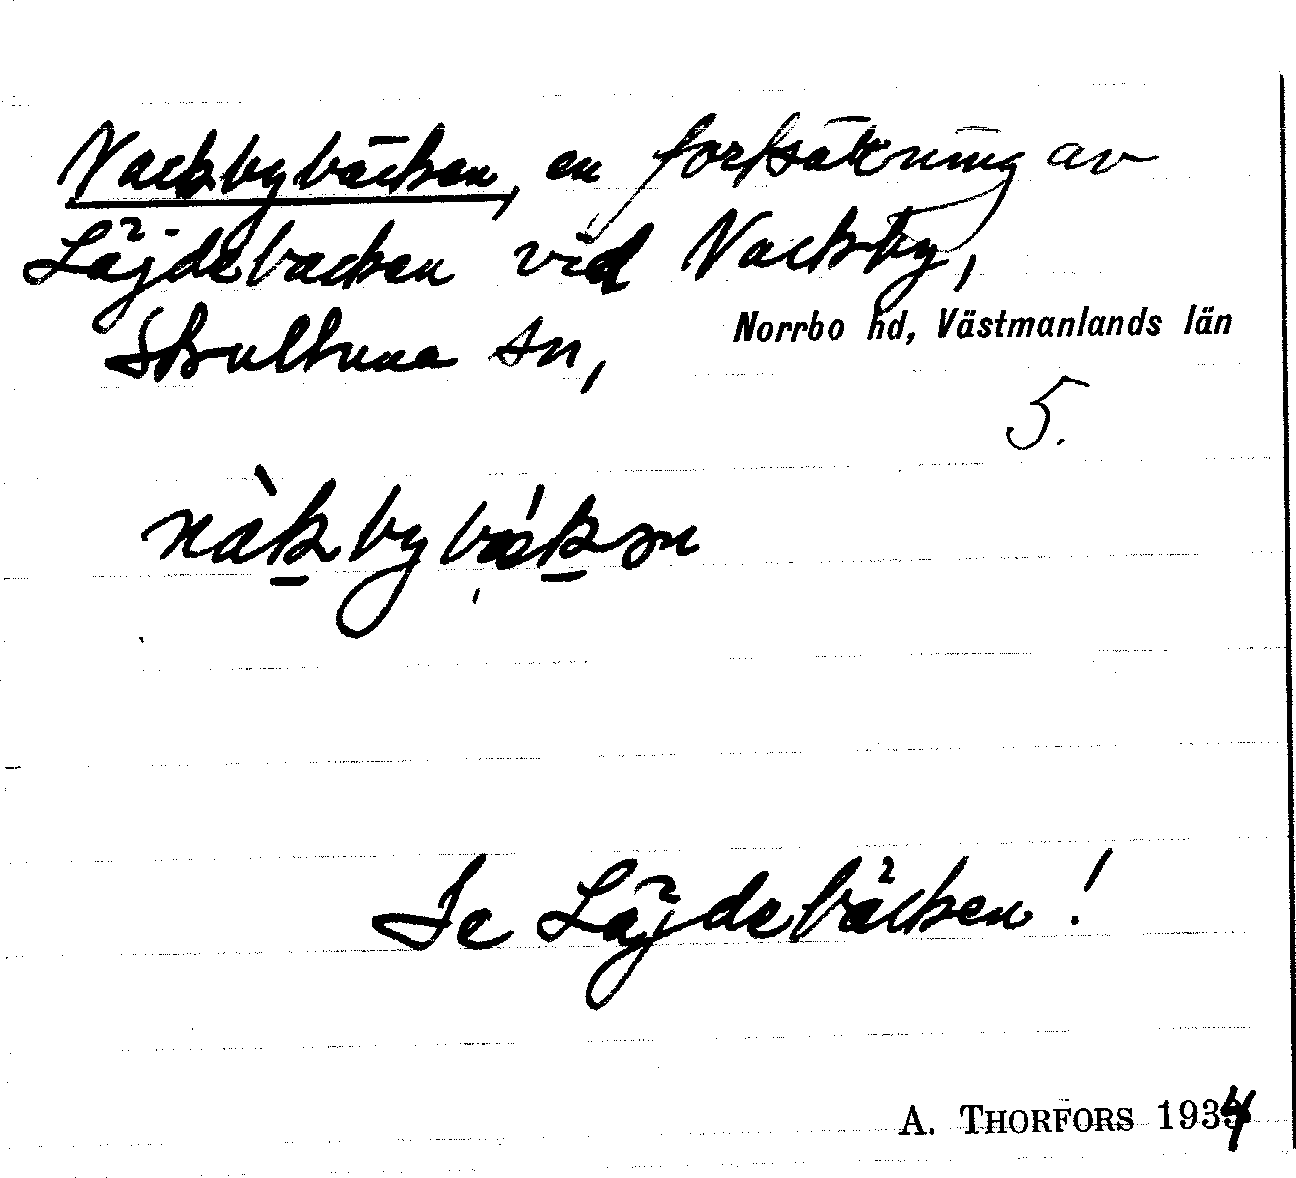 Nackbybäcken, en fortsättning av
Läjdebäcken vid Nackby,
Skultuna sn, Norrbo hd, Västmanlands län
5.
nàk̲bybǽk̲ən
Se Läjdebäcken!
A. THORFORS 1934